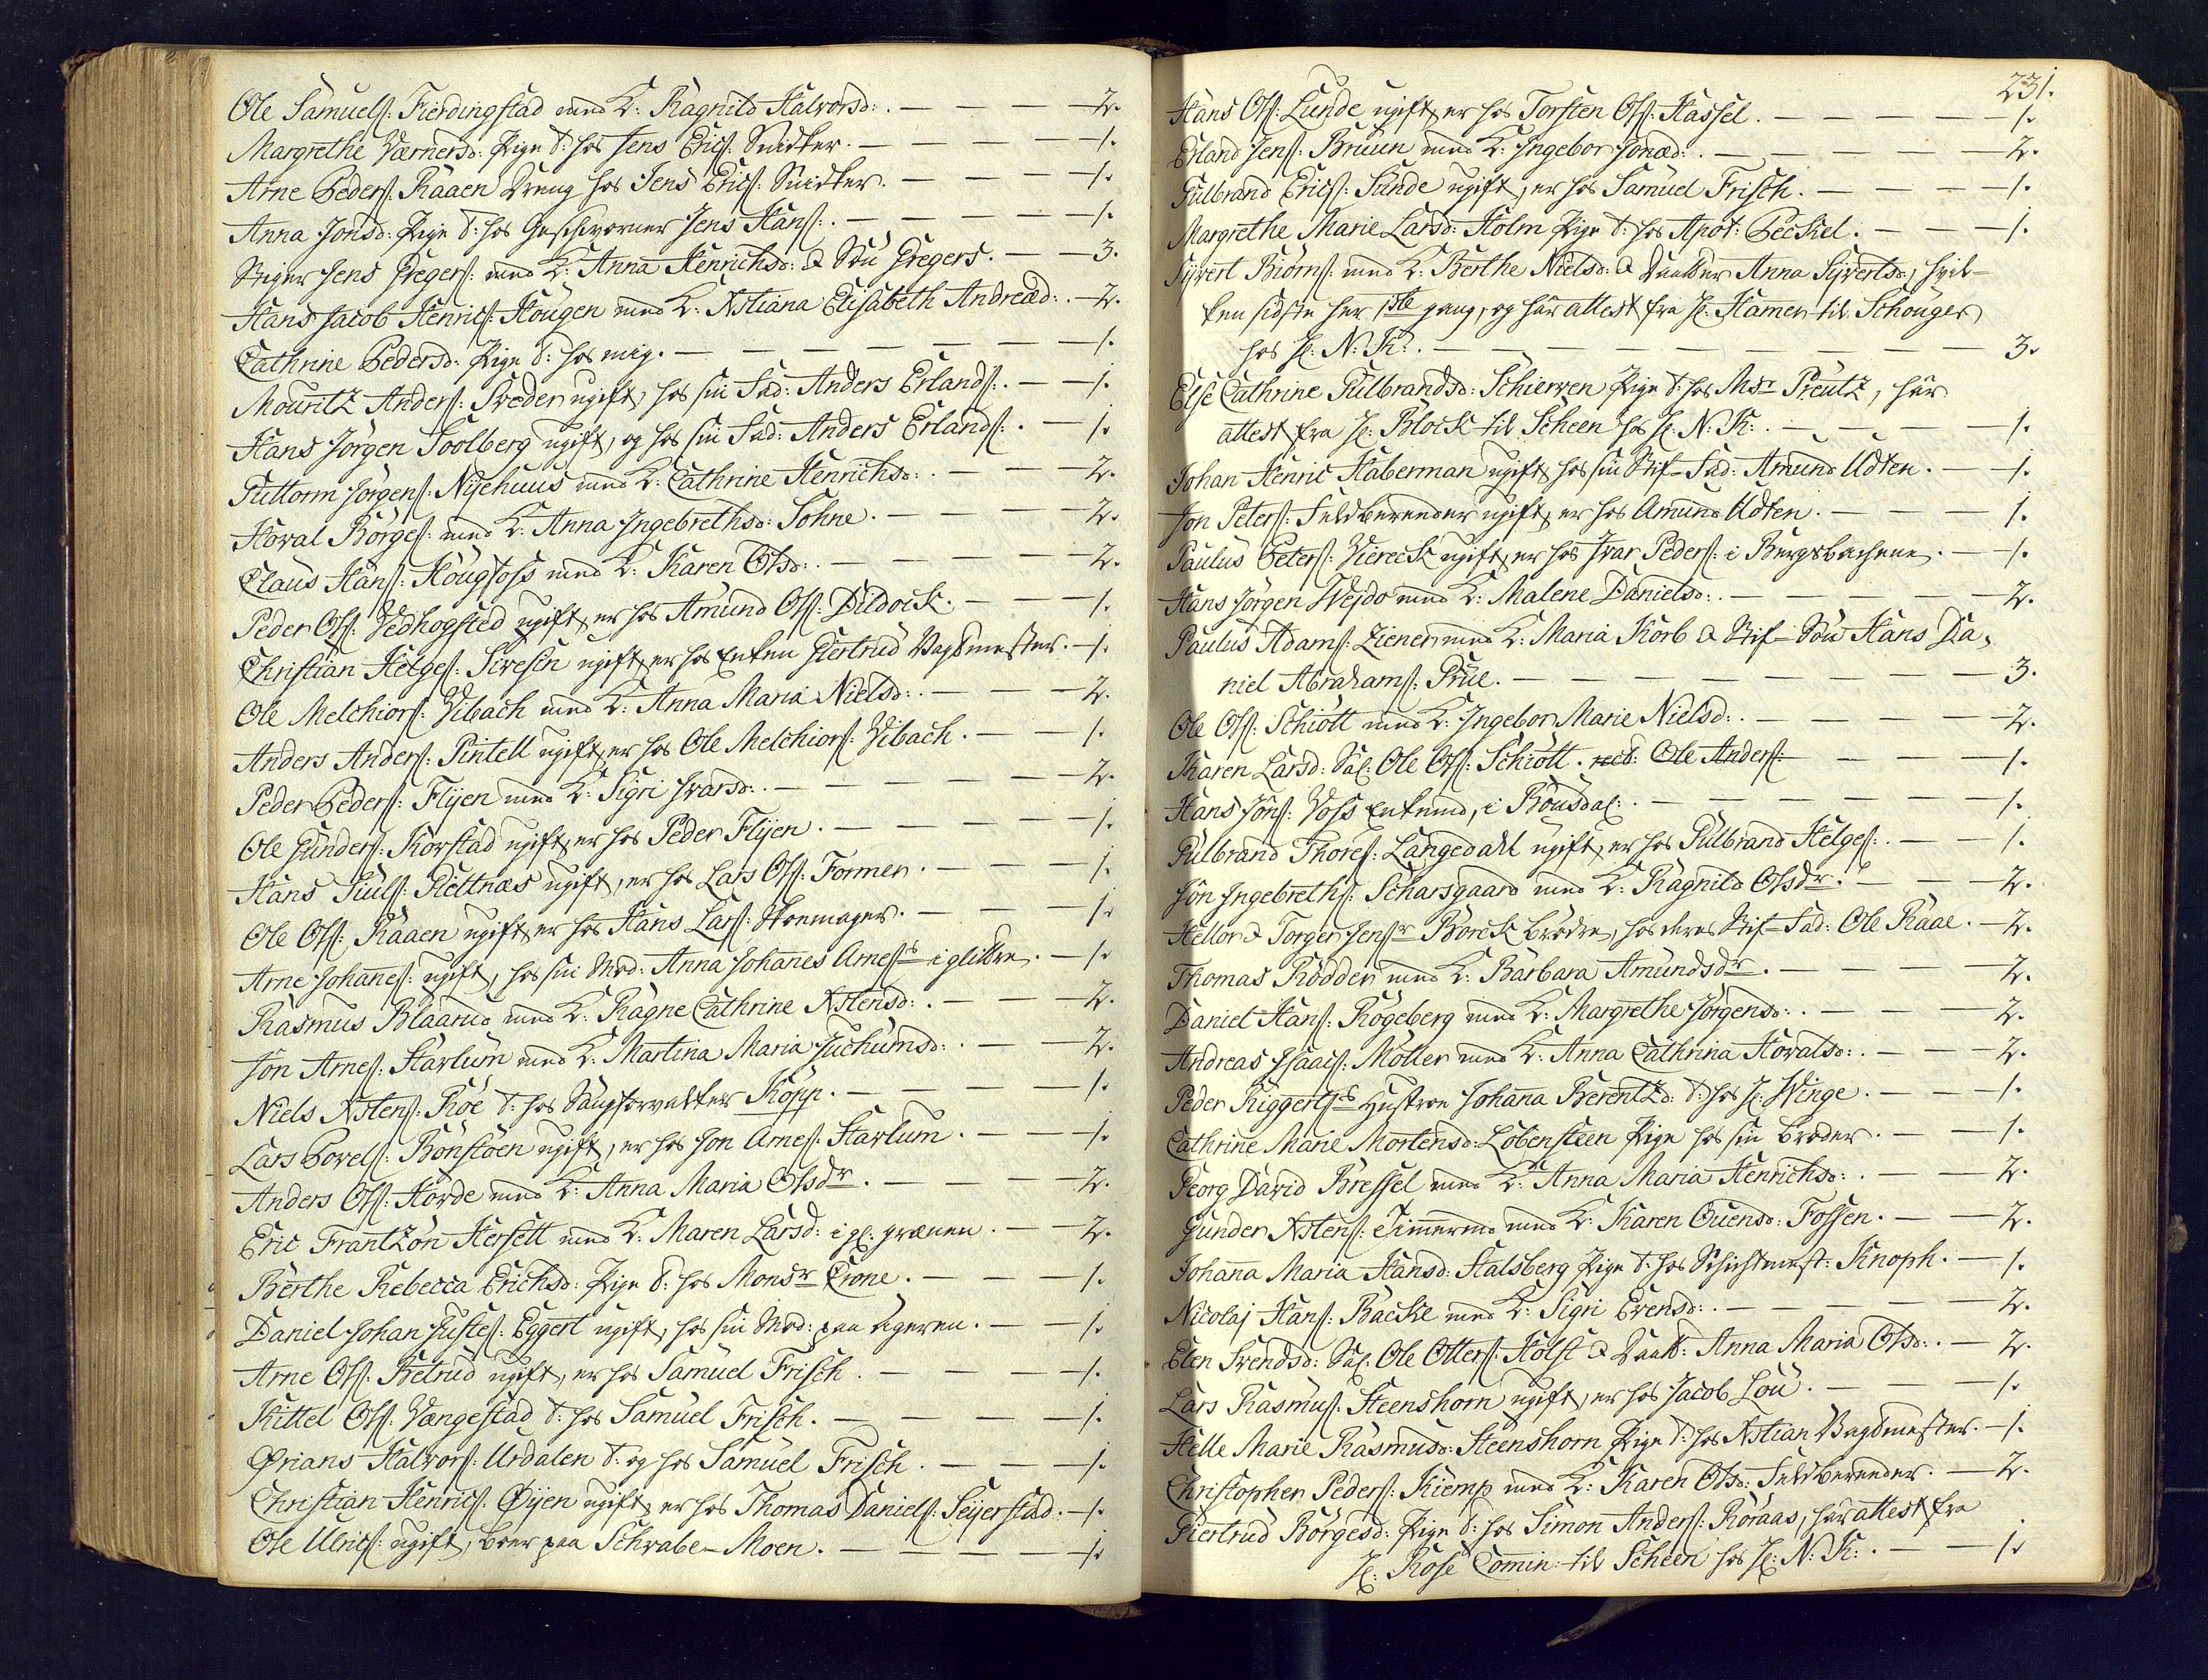 Ole Samuelſ: Fierdingstad med K: Ragnild Halvorsd:. — — — — 2.
Margrethe Værnersd: Pige t: hos Jens Ericſ: Snidker. — — — — 1.
Arne Pederſ: Raaen Dreng hos Jens Ericſ: Snidker. — — — 1.
Anna Jonsd: Pige t: hos Geschworner Jens Hanſ:. — — — — 1.
Stiger Jens Gregerſ: med K: Anna Henrichsd: & Søn Gregers. — — 3.
Hans Jacob Henricſ: Hougen med K: Xstiana Elisabeth Andread:. — 2.
Cathrine Pedersd: Pige t: hos mig. — — — — — — 1.
Mouritz Anderſ: Sveder ugift, hos sin Fad: Anders Erlandſ:. — — 1.
Hans Jørgen Soolberg ugift, og hos sin Fad: Anders Erlandſ:. — 1.
Guttorm Jørgenſ: Nyehuus med K: Cathrine Henrichsd:. — — — 2.
Hoval Børgeſ: med K: Anna Ingebrethsd: Sohne. — — — — 2.
Claus Hanſ: Hougfoss med K: Karen Olsd:. — — — — 2.
Peder Olſ: Vedhogsted ugift, er hos Amund Olſ: Dildock. — — — 1.
Christian Helgeſ: Sivesen ugift, er hos Enken Giertrud Vagtmester. — 1.
Ole Melchiorſ: Vibach med K: Anna Maria Nielsd:. — — — 2.
Anders Anderſ: Pintell ugift, er hos Ole Melchiorſ: Vibach. — — — 1.
Peder Pederſ: Flyen med K: Sigri Ivarsd:. — — — — — 2.
Ole Gunderſ: Korstad ugift, er hos Peder Flyen. — — — — — 1.
Hans Juulſ: Giettnæs ugift, er hos Lars Olſ: Former. — — — — 1.
Ole Olſ: Raaen ugift, er hos Hans Larſ: Skoemager. — — — 1.
Arne Johaneſ: ugift, hos sin Mod: Anna Johanes Arneſs i glittre. — 1.
Rasmus Blaarud med K: Ragne Cathrine Xstensd:. — — — 2.
Jon Arneſ: Harlum med K: Martina Maria Juchumsd:. — — — 2.
Niels Xstenſ: Roe t: hos Saugforvalter Kopp. — — — — — 1.
Lars Povelſ: Bønstøen ugift, er hos Jon Arneſ: Harlum. — — — 1.
Anders Olſ: Horde med K: Anna Maria Olsdr. — — — — 2.
Eric Frantzøn Hersett med K: Maren Larsd: i gl: grænen. — — 2.
Berthe Rebecca Erichsd: Pige t: hos Monsr Crone. — — — — 1.
Daniel Johan Justeſ: Eggert ugift, hos sin Mod: paa Ageren. — — 1.
Arne Olſ: Betrud ugift, er hos Samuel Frisch. — — — — 1.
Kittel Olſ: Vangestad t: hos Samuel Frisch. — — — — 1.
Ørians Halvorſ: Urdalen t: og hos Samuel Frisch. — — — 1.
Christian Henricſ: Øyen ugift, er hos Thomas Danielſ: Seyerstad. — 1.
Ole Ulricſ: ugift, boer paa Schwabe-Moen. — — — — — 1.
231.
Hans Olſ: Lunde ugift, er hos Torsten Olſ: Hassel. — — — — — 1.
Erland Jenſ: Bruun med K: Ingebor Jonæd:. — — — — — 2.
Gulbrand Ericſ: Sunde ugift, er hos Samuel Frisch. — — — — 1.
Margrethe Marie Larsd: Holm Pige t: hos Apot: Peckel. — — — 1.
Syvert Biørnſ: med K: Berthe Nielsd: & Daatter Anna Syvertsd:, hvil-
ken sidste her 1ste gang, og har attest fra H: Hamer til Schouger
hos H: N: K:. — — — — — — — — — — 3.
Else Cathrine Gulbrandsd: Schierven Pige t: hos Msr Preutz, har
attest fra H: Block til Scheen hos H: N: K:. — — — — 1.
Johan Henric Haberman ugift, hos sin Stif-Fad: Amund Udten. — — 1.
Jon Peterſ: Feldbereder ugift, er hos Amund Udten. — — — — 1.
Paulus Peterſ: Viereck ugift, er hos Ivar Pederſ: i Bergsbachene. — — 1.
Hans Jørgen Weydo med K: Malene Danielsd:. — — — — 2.
Paulus Adamſ: Ziener med K: Maria Korb & Stif-Søn Hans Da,
niel Abrahamſ: Prüe. — — — — — — — — — 3.
Ole Olſ: Schiøtt med K: Ingebor Marie Nielsd:. — — — — 2.
Karen Larsd: Sal: Ole Olſ: Schiøtt. red: Ole Anderſ: — — — 1.
Hans Jonſ: Voss Enkemd, i Rousdal:. — — — — — — 1.
Gulbrand Thoreſ: Langedahl ugift, er hos Gulbrand Helgeſ:. — — 1.
Jon Ingebrethſ: Scharsgaard med K: Ragnild Olsdr. — — — 2.
Hellor & Torger Jensſr Borck Brødre, hos deres Stif-Fad: Ole Raae. — 2.
Thomas Rødder med K: Barbara Amundsdr. — — — — 2.
Daniel Hanſ: Røgeberg med K: Margrethe Jørgensd:. — — — 2.
Andreas Isaacſ: Møller med K: Anna Cathrina Hovalsd:. — — — 2.
Peder Riggertſes Hustroe Johana Berentzd: t: hos H: Winge. — — — 1.
Cathrine Marie Mortensd: Lobensteen Pige hos sin Broder. — — 1.
Georg David Bressel med K: Anna Maria Henrichsd:. — — — 2.
Gunder Xstenſ: Timmermd med K: Karen Ouensd: Fossen. — — 2.
Johana Maria Hansd: Halsberg Pige t: hos Schichtmest: Knoph. — 1.
Nicolaj Hanſ: Backe med K: Sigri Evensd:. — — — — — 2.
Elen Svendsd: Sal: Ole Otterſ: Holst & Daatt: Anna Maria Olsd:. — 2.
Lars Rasmuſ: Steenshorn ugift, er hos Jacob Lou. — — — — 1.
Helle Marie Rasmusd: Steenshorn Pige t: hos Xstian Vagtmester. — 1.
Christopher Pederſ: Kiemp med K: Karen Olsd: Feldbereder. — 2.
Giertrud Børgesd: Pige t: hos Simon Anderſ: Røraas, har attest fra
H: Rose Comin: til Scheen hos H: N: K:. — — 1.